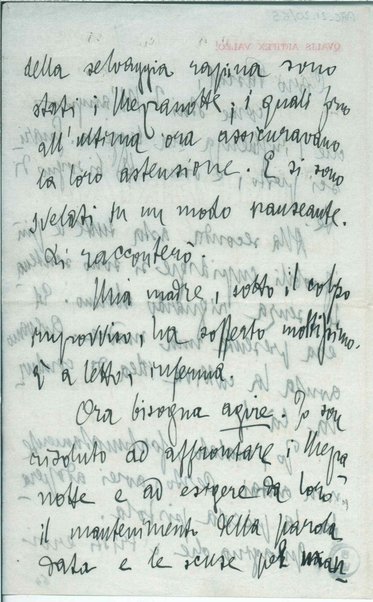 QVALIS ARTIFEX VALEO!
della selvaggia rapina sono
stati i Mezzanotte, i quali fino
all'ultima ora assicuravano
la loro astensione. E si sono
svelati in un modo nauseante.
Ti racconterò.
Mia madre, sotto il colpo
improvviso, ha sofferto moltissimo.
È a letto, inferma.
Ora bisogna agire. Io son
risoluto ad affrontare i Mezza
notte e ad esigere da loro
il mantenimento della parola
data e le scuse per